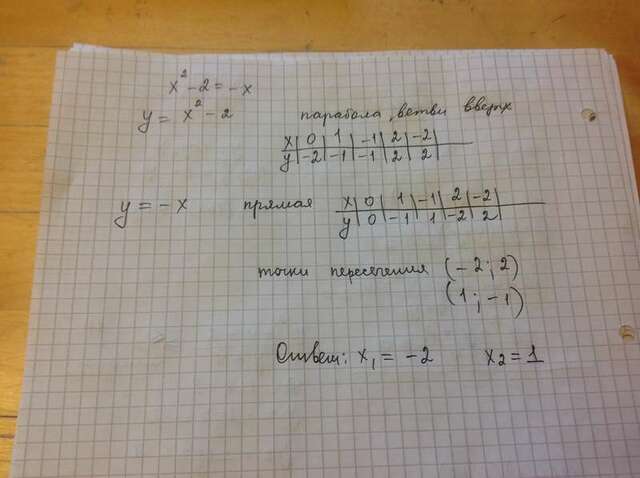 x² - 2 = - x
y = x² - 2 парабола, ветви вверх
x | 0 | 1 | -1 | 2 | -2 |
y | -2 | -1 | -1 | 2 | 2 |
y = - x прямая x | 0 | 1 | -1 | 2 | -2 |
y | 0 | -1 | 1 | -2 | 2 |
точки пересечения (-2; 2)
(1; -1)
Ответ: x₁ = -2 x₂ = 1